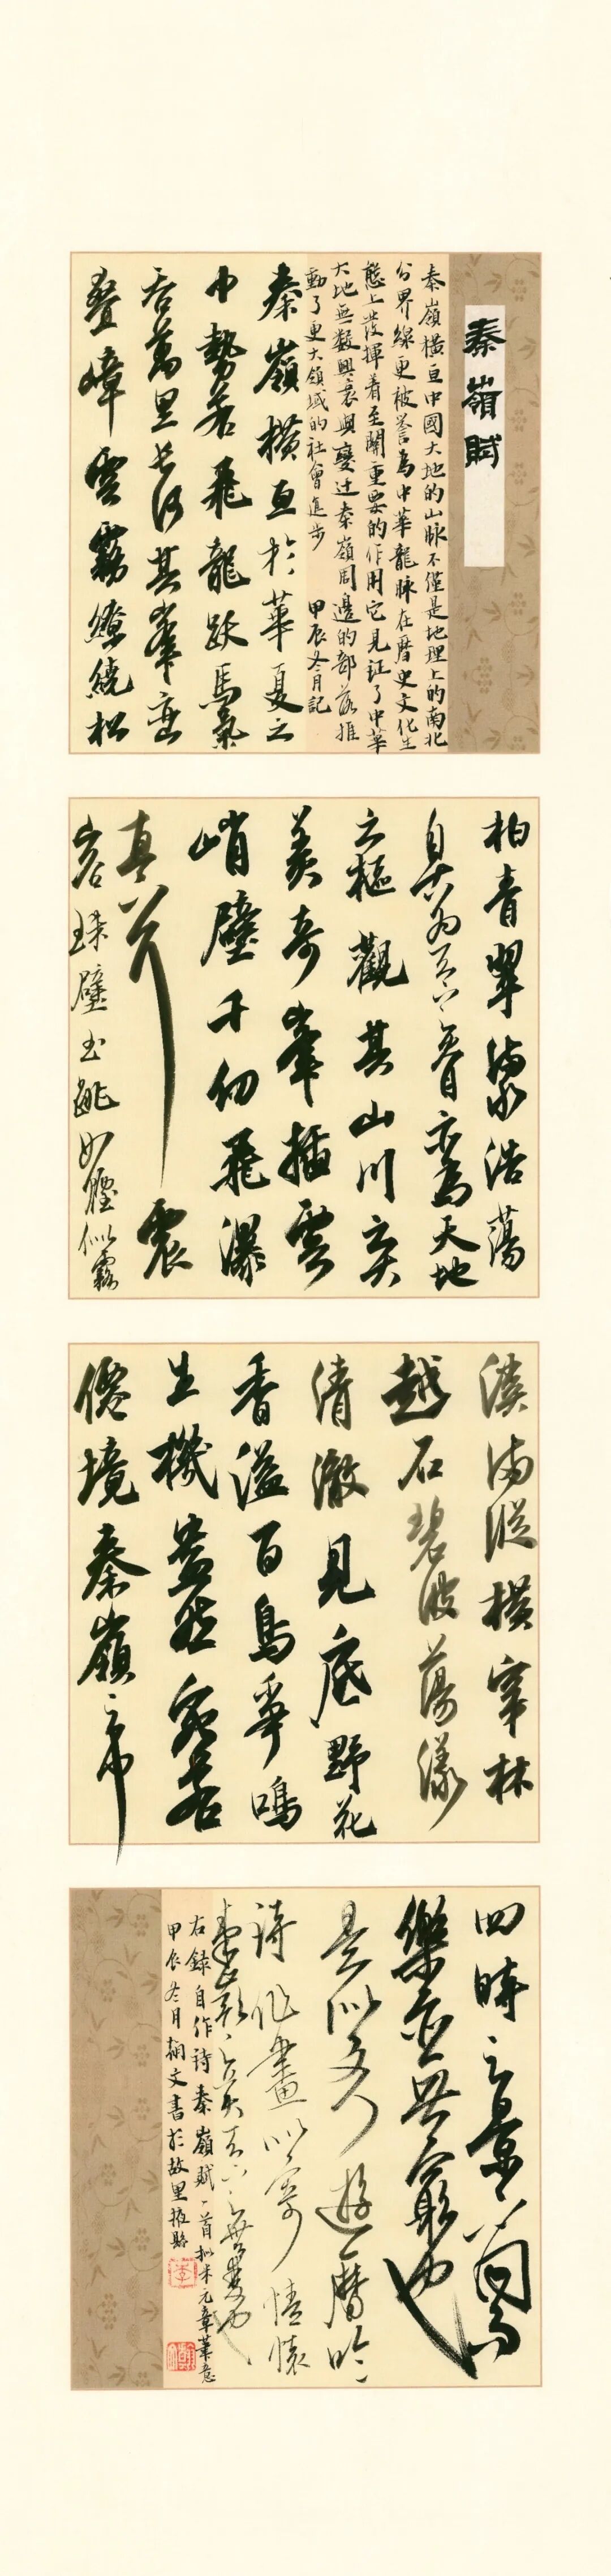 秦嶺賦
秦嶺橫亘中國大地的山脉不僅是地理上的南北
分界線更被譽為中華龍脉在曆史文化生
態上發揮着至關重要的作用它見证了中華
大地無數興衰與變迁秦嶺周邊的部落推
動了更大領域的社會進步 甲辰冬月記
秦嶺橫亘於華夏之
中勢若飛龍跃馬氣
吞萬里長河其峯巒
疊嶂雲霧繚繞松
柏青翠濛浩蕩
亦為天地
之樞觀其山川奕
美奇峯插雲
峭壁千仞飛瀑
真 震
岩珠壁玉 如 似霧
溪流縱橫穿林
越石碧波蕩漾
清澈見底野花
香溢百鳥爭鳴
生機盎然宛若
僊境秦嶺之
四時之景不同而
樂亦無窮也
是以文人遊曆吟
詩作畫以寄情懷
右録自作诗秦嶺賦一首拟米元章筆意
甲辰冬月翰文書於故里